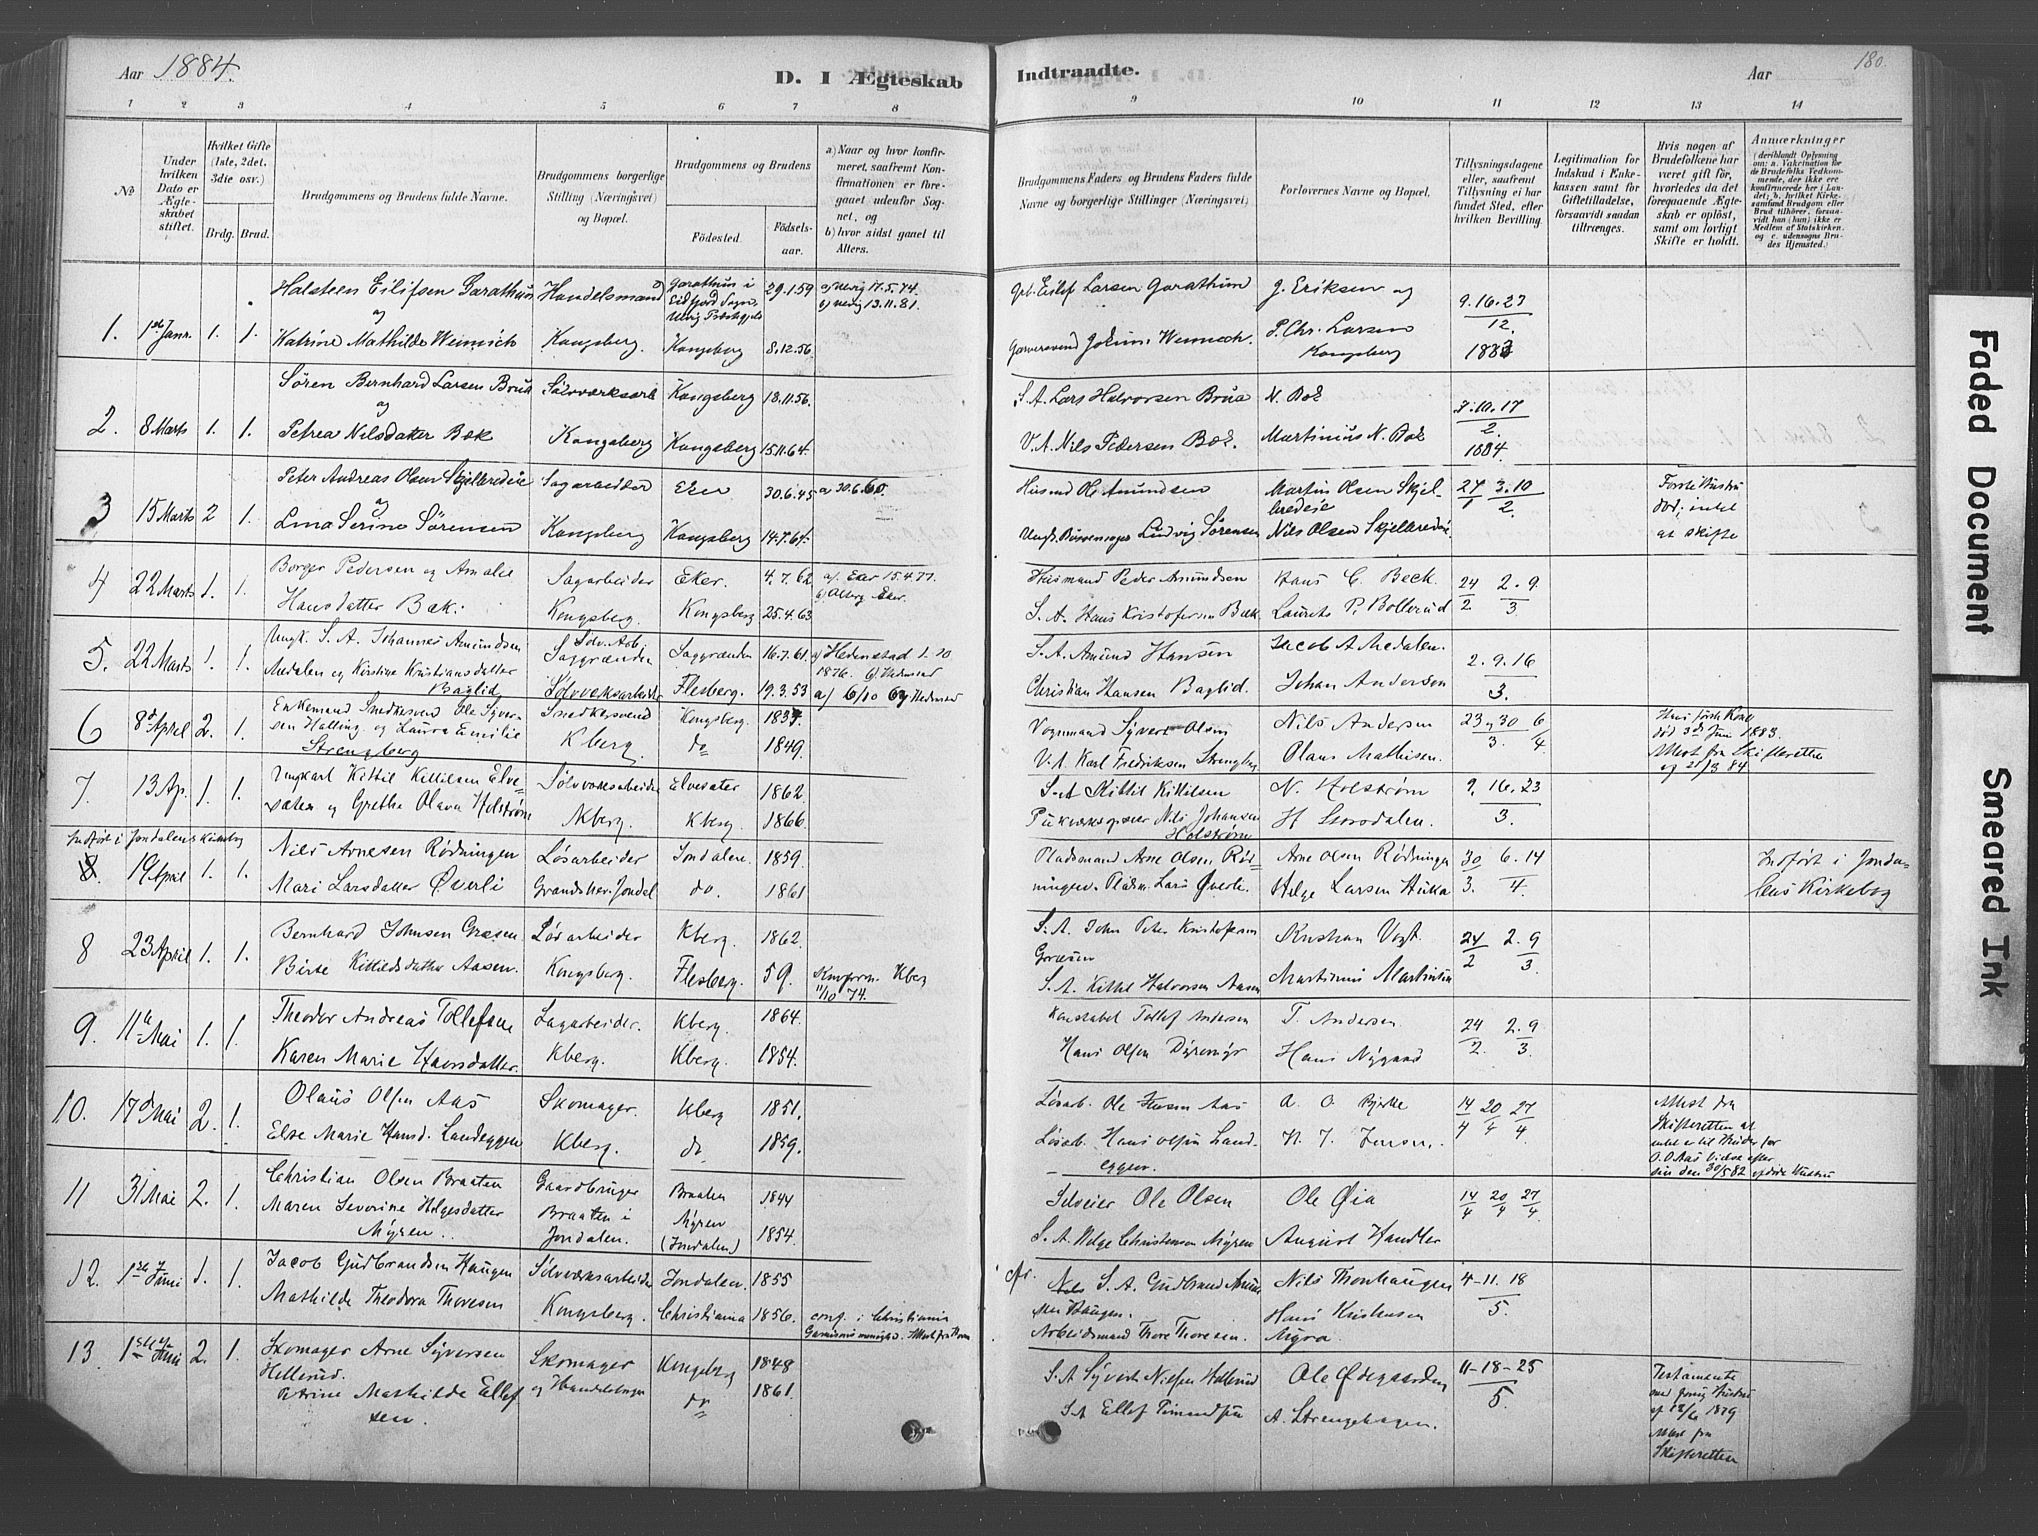 Aar 1884.
D. I Ægteskab
Indtraadte.
Aar
180.
1 2 3 4 5 6 7 8
9 10 11 12 13 14
No
Under hvilken Dato er Ægteskabet stiftet.
Hvilket Gifte (1ste, 2det, 3die osv.)
Brdg. Brud.
Brudgommens og Brudens fulde Navne.
Brudgommens borgerlige Stilling (Næringsvei) og Bopæl.
Brudgommens og Brudens
Födested.
Födselsaar.
a) Naar og hvor konfirmeret, saafremt Konfirmationen er foregaaet udenfor Sognet, og
b) hvor sidst gaaet til Alters.
Brudgommens Faders og Brudens Faders fulde Navne og borgerlige Stillinger (Næringsvei)
Forlovernes Navne og Bopæl.
Tillysningsdagene eller, saafremt Tillysning ei har fundet Sted, efter hvilken Bevilling.
Legitimation for Indskud i Enkekassen samt for Giftetilladelse, forsaavidt saadan tiltrænges.
Hvis nogen af Brudefolkene har været gift för, hvorledes da det foregaaende Ægteskab er oplöst, samt om lovligt Skifte er holdt.
Anmærkninger
(deriblandt Oplysning om: a. Vakcination for de Brudefolks Vedkommende, der ikke ere konfirmerede her i Landet; b. hvilket Kirkesamfund Brudgom eller Brud tilhörer, forsaavidt han (hun) ikke er Medlem af Statskirken, og c. udensogns Brudes Hjemsted.)
1. 1ste Janr. 1. 1.
Halsteen Eilifsen Garathun
og
Katrine Mathilde
Handelsmand
Kongsberg.
Garathun i Eidfjord Sogn
29.1.59
Kongsberg 8.12.56
a) Ulvig 17.5.74.
b) Ulvig 13.11.81.
Eilef Larsen Garathun
J. Eriksen og
P. Chr. Larsen
Kongsberg
9.16.23
12.
1883
2. 8 Marts 1. 1.
Søren Bernhard Larsen Brua
og
Petrea Nilsdatter Bæk
Sølvverksarb
Kongsberg
Kongsberg 18.11.56.
Kongsberg 15.11.64.
S.A. Lars Halvorsen Brua
V.A. Nils Pedersen Bæk.
N. Bæk
Martinius N. Bæk
3.10.17
2.
1884.
3 15 Marts 2 1.
Peter Andreas Olsen Skjelbredeie
og
Lina Serine Sørensen
Sagarbeider
Kongsberg
Eker 30.6.45
Kongsberg 14.7.64.
a) 30.6.60.
Husmd Ole Amundsen
Ludvig Sørensen
Martin Olsen Skjelbredeie
Nils Olsen Skjelbredeie
27 3.10
1 2.
Første Hustru
død; intet
at skifte
4 22 Marts 1. 1.
Borger Pedersen og Amalie
Hansdatter Bæk.
Sagarbeider
Kongsberg.
Eker. 4.7.62
Kongsberg 25.4.63
a). Eker 15.4.77.
Husmand Peder Amundsen
S.A. Hans Kristofersen Bæk
Hans C. Beck.
Laurits P. Bollerud
24 2.9
2 3
5. 22 Marts 1. 1.
Ungk. S.A. Johannes Amundsen
Medalen og Kirstine Kristiansdatter
Baglid
Sølv. Arb.
Saggrænden
Sølvverksarbeider
Saggrænden 16.7.61.
Flesberg. 19.3.53
a) Hedenstad 1.10
1876.
a) 6/10 67 Hedenstad
S.A. Amund Hansen
Christian Hansen Baglid.
Jacob A Medalen.
Johan Anderson
2.9.16
3.
6 8de April 2. 1.
Enkemand Snedkersvend Ole Syversen Halling og Laura Emilie
Strengberg
Snedkersvend
Kberg.
Kongsberg. 1837
do 1849.
Vognmand Syvert Olsen
V.A. Karl Fredriksen Strengberg
Nils Andersen
Olaus Mathisen.
23 30 6
3. 4
Hans første Kone
død 3de Juni 1883.
Attest fra Skifteretten
og 21/3 84
7. 13 Ap. 1. 1.
Ungkarl Kittil Kittilsen Elvesæter og Grethe Olava Holstrøm
Sølvverksarbeider
Kberg.
Elvesæter 1862
Kberg. 1866
S.A Kittil Kittilsen
Nils Johansen
Holstrøm
N. Holstrøm
9. 16. 23
3.
Indført i Jondalens Kirkebog
8. 19 April 1. 1.
Nils Arnesen Rødningen
Mari Larsdatter Øverli
Løsarbeider
Jondal
Jondalen 1859
do. 1861
Pladsmand Arne Olsen Rødningen. Pladsm. Lars Øverli.
Arne Olsen Rødningen
Helge Larsen
30 6.14
3. 4.
Indført i Jondalens Kirkebog
8 23 April 1. 1.
Bernhard Johnsen Græsen
Birte Kittilsdatter Aasen.
Løsarbeider
Kongsberg.
Kberg. 1862.
Flesberg. 59.
Konfirm. Kberg
11/10 74.
S.A. John Peter Kristofersen
S.A. Kittil Halvorsen Aasen
Kristian Vogt.
Martinius Martinsen
24 2.9
2 3
9. 11te Mai 1. 1.
Theodor Andreas Tollefsen
Karen Marie Hansdatter.
Sagarbeider.
Kberg.
Kberg. 1864.
Kberg. 1854.
Konstabel Tollef Andersen
Hans Olsen Dyremyr
T. Andersen.
Hans Nygaard
24 2.9
2. 3.
10. 17de Mai 2. 1.
Olaus Olsen Aas
Else Marie Hansd. Landeggen
Skomager.
Kberg.
Kberg 1851.
do 1859.
Løsarb. Ole Aas
Løsarb. Hans Olsen Landeggen.
A. O. Bjerke
H. J. Jensen.
14 20 27
4 4 4
Attest fra
Skifteretten at
11 31 Mai 2. 1.
Christian Olsen Braaten
Maren Severine Helgesdatter
Myren.
Gaardbruger
Braaten i
Jondalen.
Braaten 1844
Myren
(Jondalen) 1854.
Selveier Ole Olsen
S.A. Helge Christensen Myren
Ole Øia
August Handler
14 20 27
4 4 4
12. 1ste Juni 1. 1.
Jacob Gudbrandsen Haugen
Mathilde Theodora Thoresen
Sølvverksarbeider
Kongsberg.
Jondalen 1855
Christiania 1856.
conf. i Christiania
S.A. Gudbrand
Haugen.
Arbeidsmand Thore Thoresen.
Nils Thonhaugen
Hans Kristiansen
Myra.
4-11.18
5.
13. 1ste Juni 2. 1.
Skomager Arne Syversen
Hellerud.
Petrine Mathilde Ellefsen.
Skomager
og Handelsborger
Kongsberg 1848
do 1861.
S.A Syvert Nielsen Hellerud
S.A Ellef
Ole Ødegaarden
A. Strengehagen.
11-18-25
5.
Testamente
med forrig Hustru
af 12/6 1879
Attest fra
Skifteretten
Faded Document
Smeared Ink